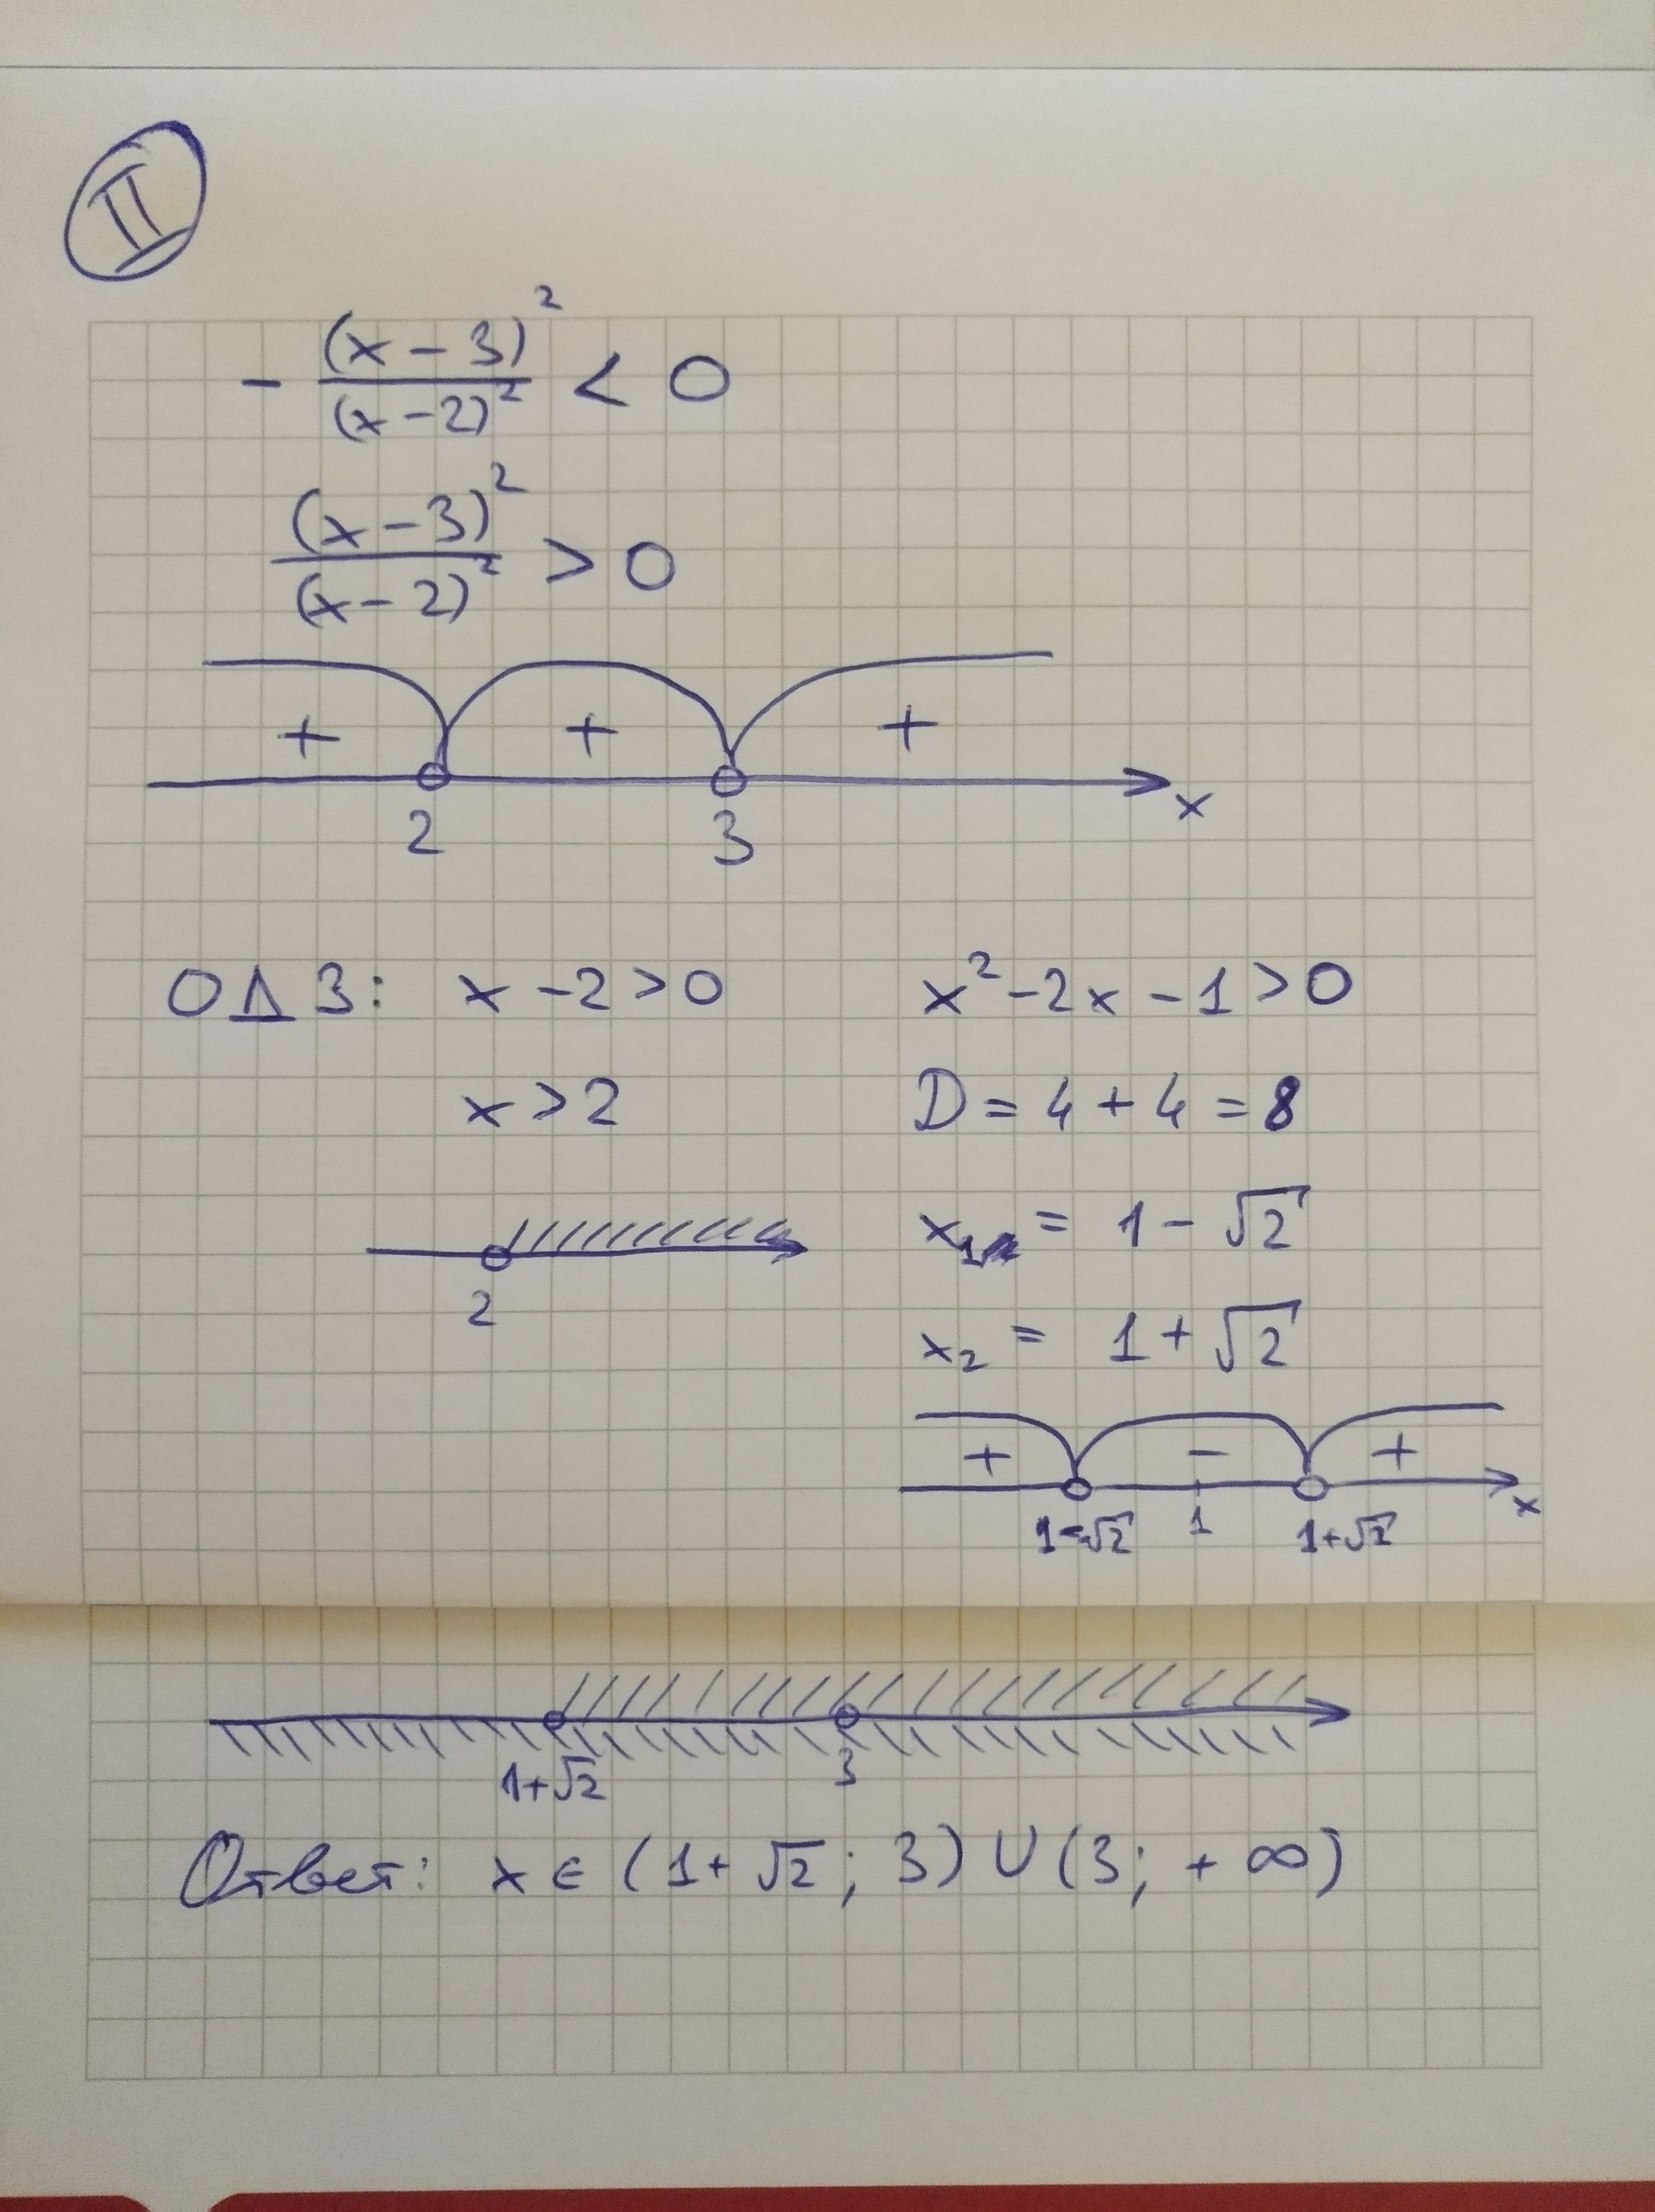 II
- (x - 3)² / (x - 2)² < 0
(x - 3)² / (x - 2)² > 0
+ + +
2 3 x
ОДЗ: x - 2 > 0 x² - 2x - 1 > 0
x > 2 D = 4 + 4 = 8
x₁ = 1 - √2
2
x₂ = 1 + √2
+ - +
1-√2 1 1+√2 x
1+√2 3
Ответ: x ∈ (1 + √2; 3) ∪ (3; +∞)